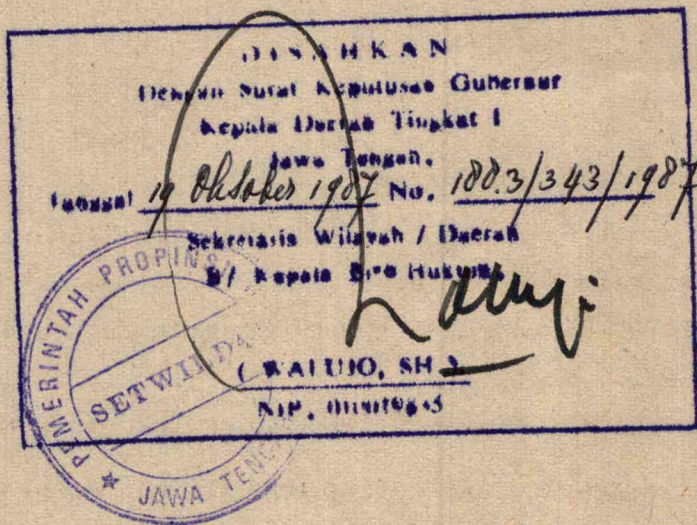 DISAHKAN
Dengan Surat Keputusan Gubernur
Kepala Daerah Tingkat I
Jawa Tengah.
Tanggal 19 Oktober 1987 No. 188.3/343/1987
Sekretaris Wilayah / Daerah
Kepala Biro Hukum
( WALUJO, SH )
NIP.
PEMERINTAH PROPINSI
SETWILDA
JAWA TENG